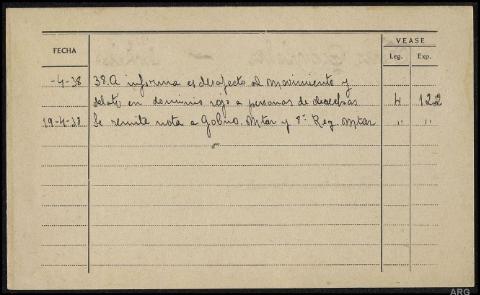 VEASE
FECHA
Leg. Exp.
-4-38 38.A informa es desafecto al movimiento y
delató en dominio rojo a personas de derechas 4 122
19-4-38 Se remite nota a Gobno. Mtar y 1ª Reg. Mtar " "
ARG